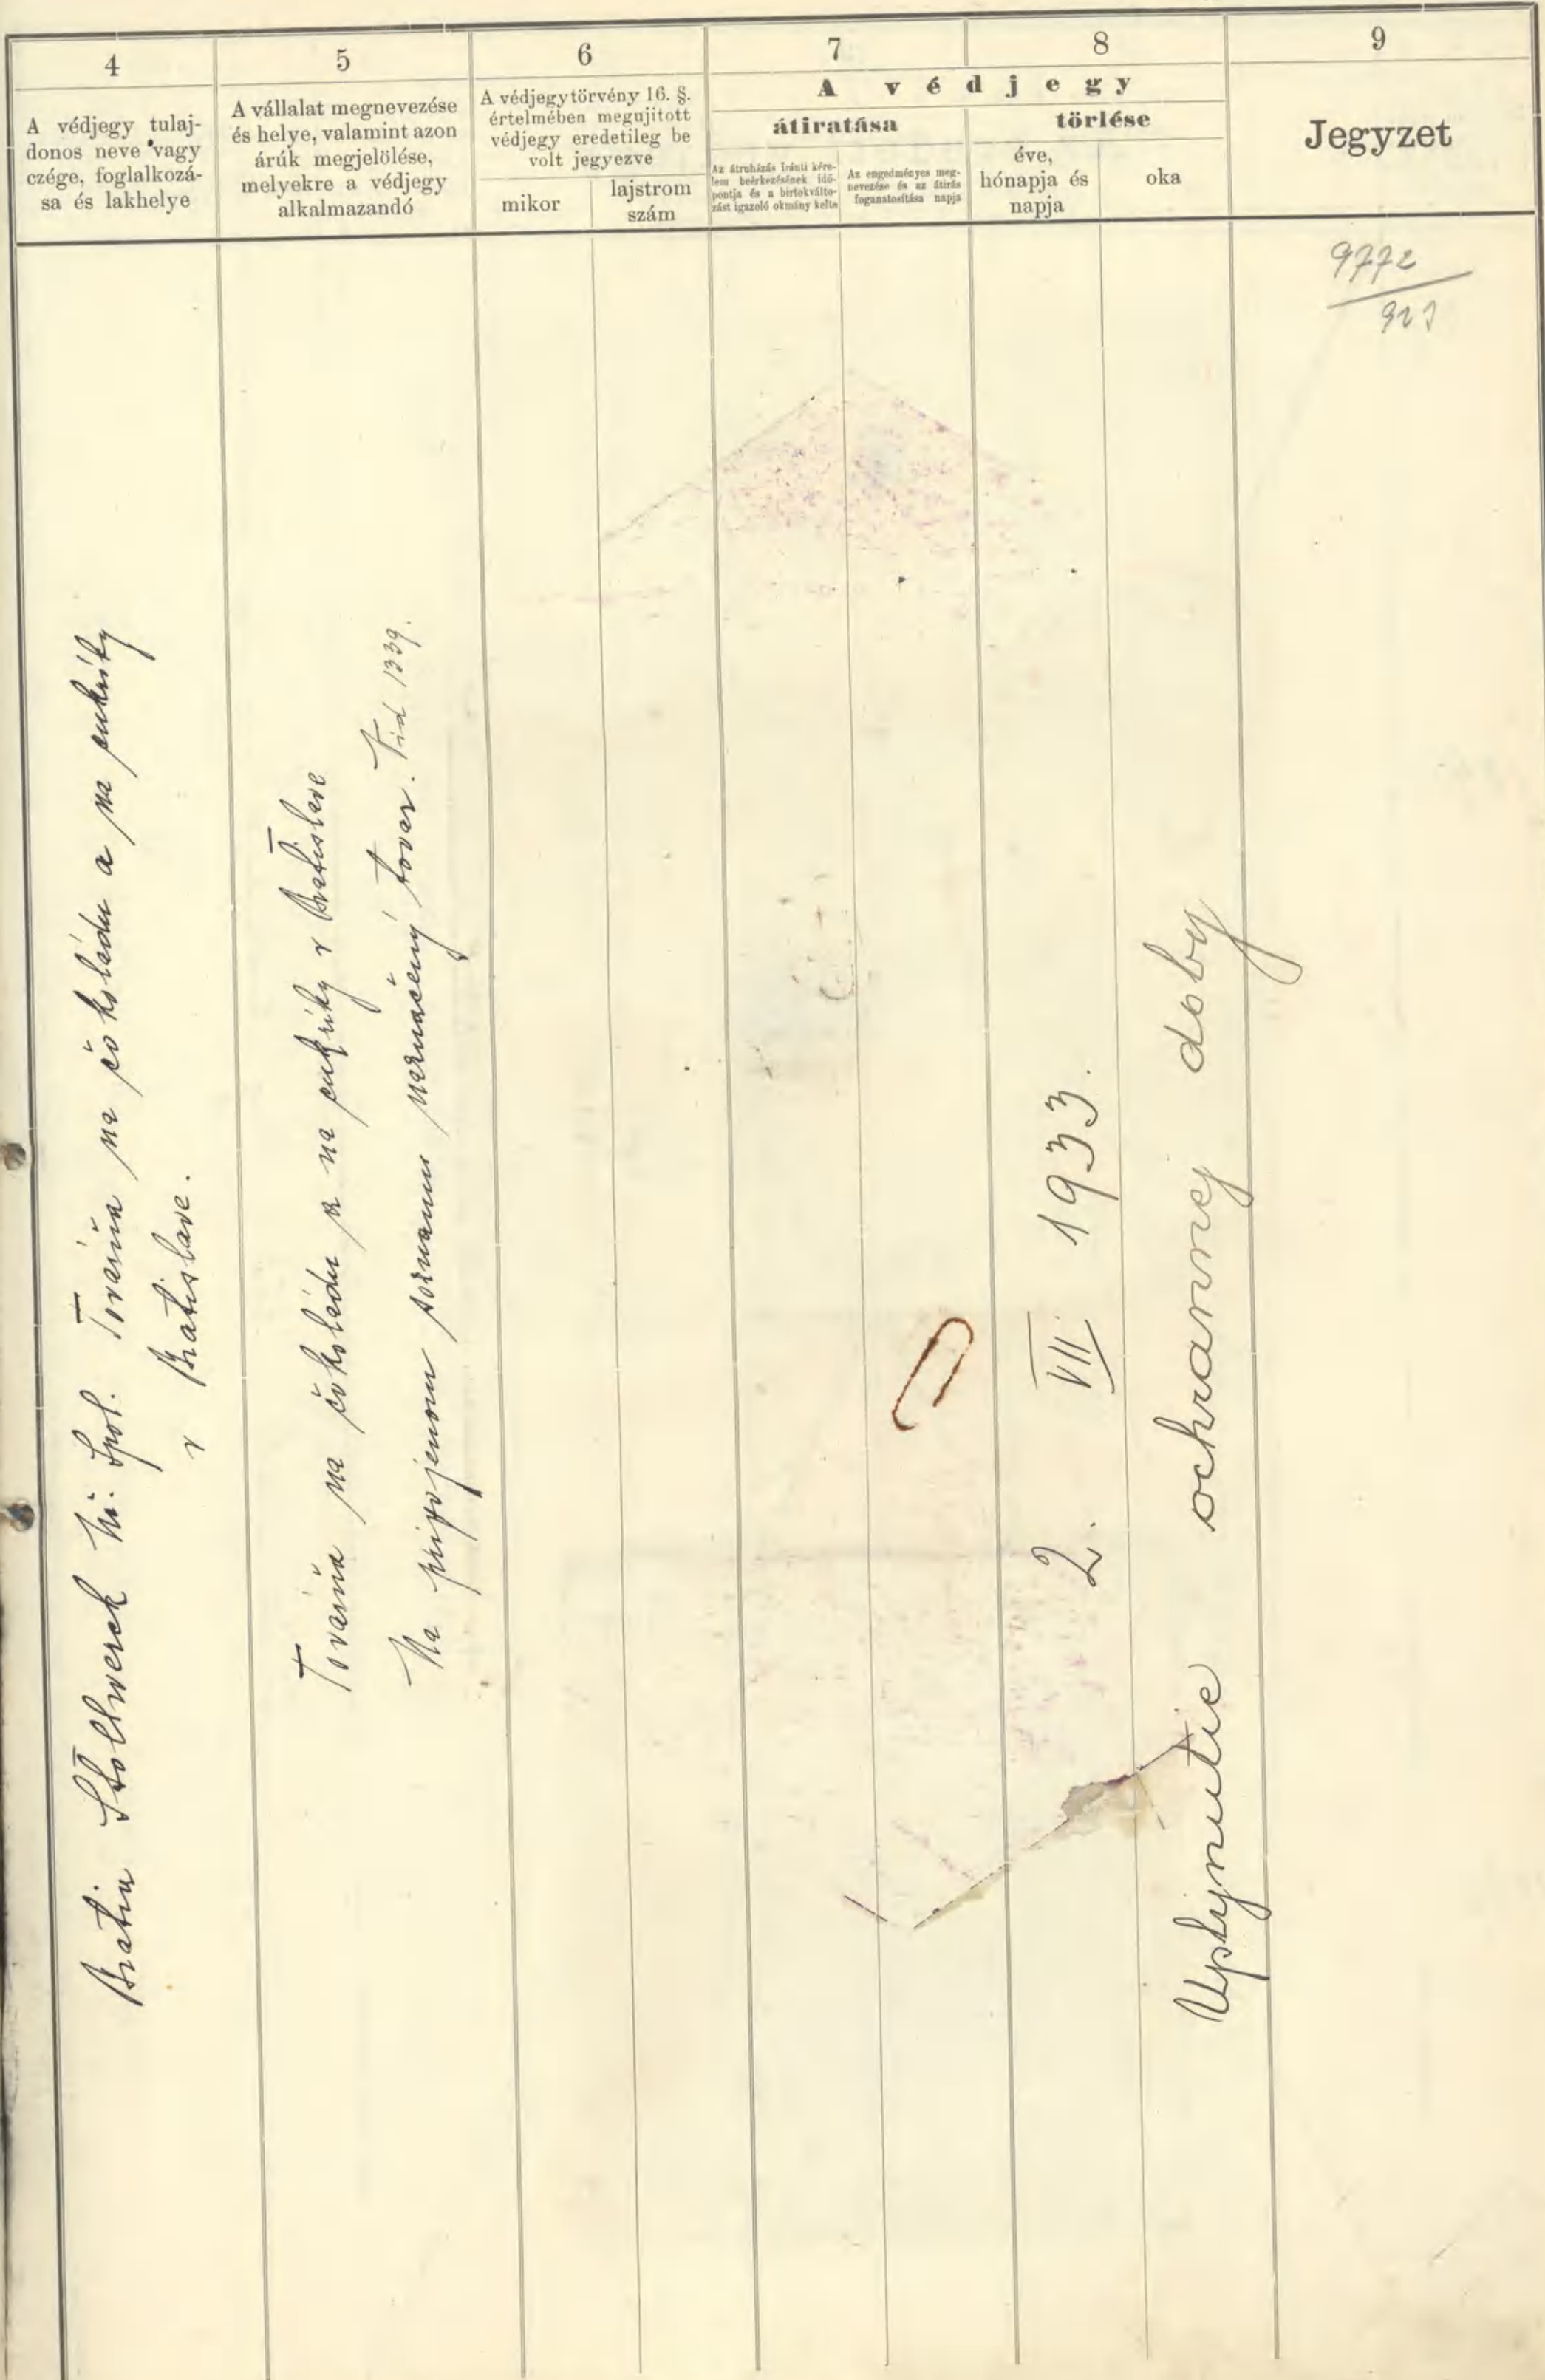 4
5
6
7
8
9
A védjegy tulaj-
donos neve vagy
czége, foglalkozá-
sa és lakhelye
A vállalat megnevezése
és helye, valamint azon
árúk megjelölése,
melyekre a védjegy
alkalmazandó
A védjegytörvény 16. §.
értelmében megujitott
védjegy eredetileg be
volt jegyezve
mikor
lajstrom
szám
A védjegy
átiratása
Az átruházás iránti kére-
lem beérkezésének idő-
pontja és a birtokválto-
zást igazoló okmány kelte
Az engedményes meg-
nevezése és az átirás
foganatosítása napja
törlése
éve,
hónapja és
napja
oka
Jegyzet
9772
923
Bratia Stollwerck úč. spol. Továrňa na čokoládu a na cukríky
v Bratislave.
Továrňa na čokoládu a na cukríky v Bratislave
Na pripojenom soznamu naznačený tovar. Tid 1339.
2. VII 1933.
Uplynutie ochrannej doby